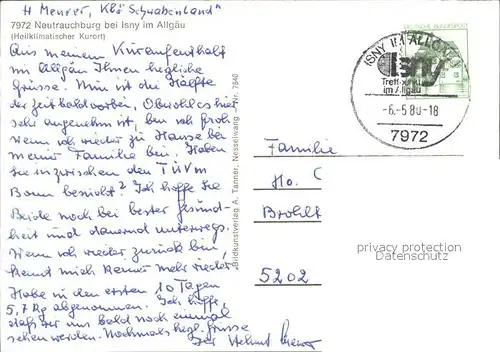 H Meurer, Kl. "Schwabenland"
7972 Neutrauchburg bei Isny im Allgäu
(Heilklimatischer Kurort)
Aus meinem Kuraufenthalt
im Allgäu Ihnen herzliche
Grüsse. Nun ist die Hälfte
der Zeit bald vorbei, Obwohl es hier
sehr angenehm ist, bin ich froh
wenn ich wieder zu Hause bei
meiner Familie bin. Haben
Sie inzwischen den TÜV
Bonn besucht? Ich hoffe Sie
Beide noch bei bester Gesund-
heit und dauernd unterwegs.
Wenn ich wieder zurück bin,
kennt mich kaum mehr wieder.
Habe in den ersten 10 Tagen
5,7 kg abgenommen. Ich hoffe,
daß wir uns bald noch einmal
sehen werden. Nochmals hrzl. Grüsse
Ihr Helmut Meurer
Bildkunstverlag A. Tanner, Nesselwang Nr. 7840
DEUTSCHE BUNDESPOST
ISNY IM ALLGÄU 1
isny
Treffpunkt
im Allgäu
-6.-5 80-18
7972
Familie
Ho. C
Brohlt
5202
privacy protection
Datenschutz